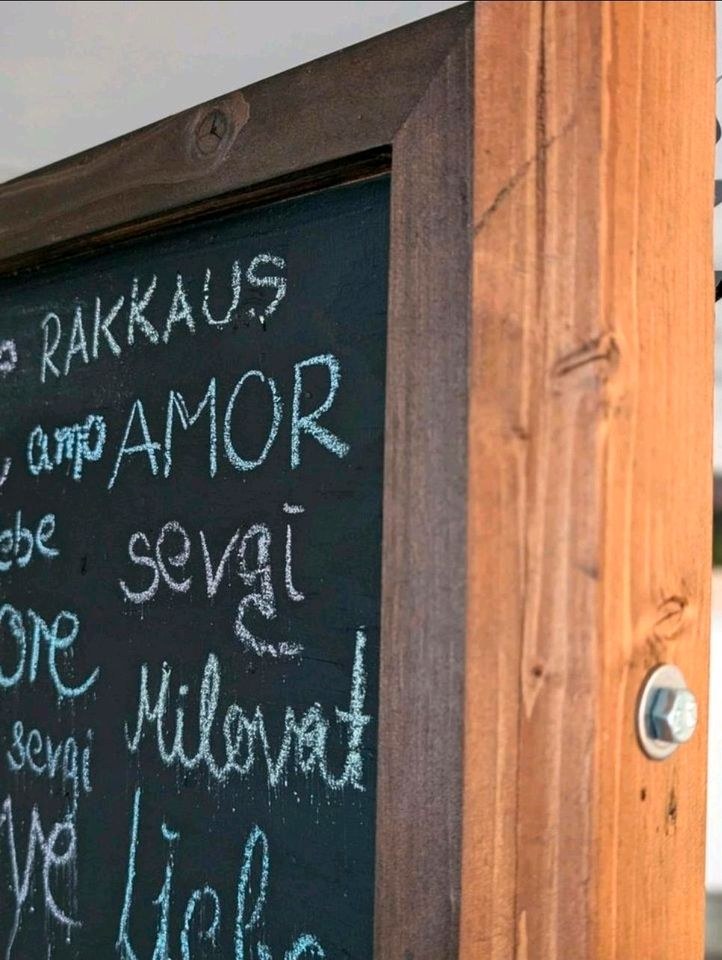 RAKKAUS
amo AMOR
ebe sevgi
ore Milovat
sevgi
ve